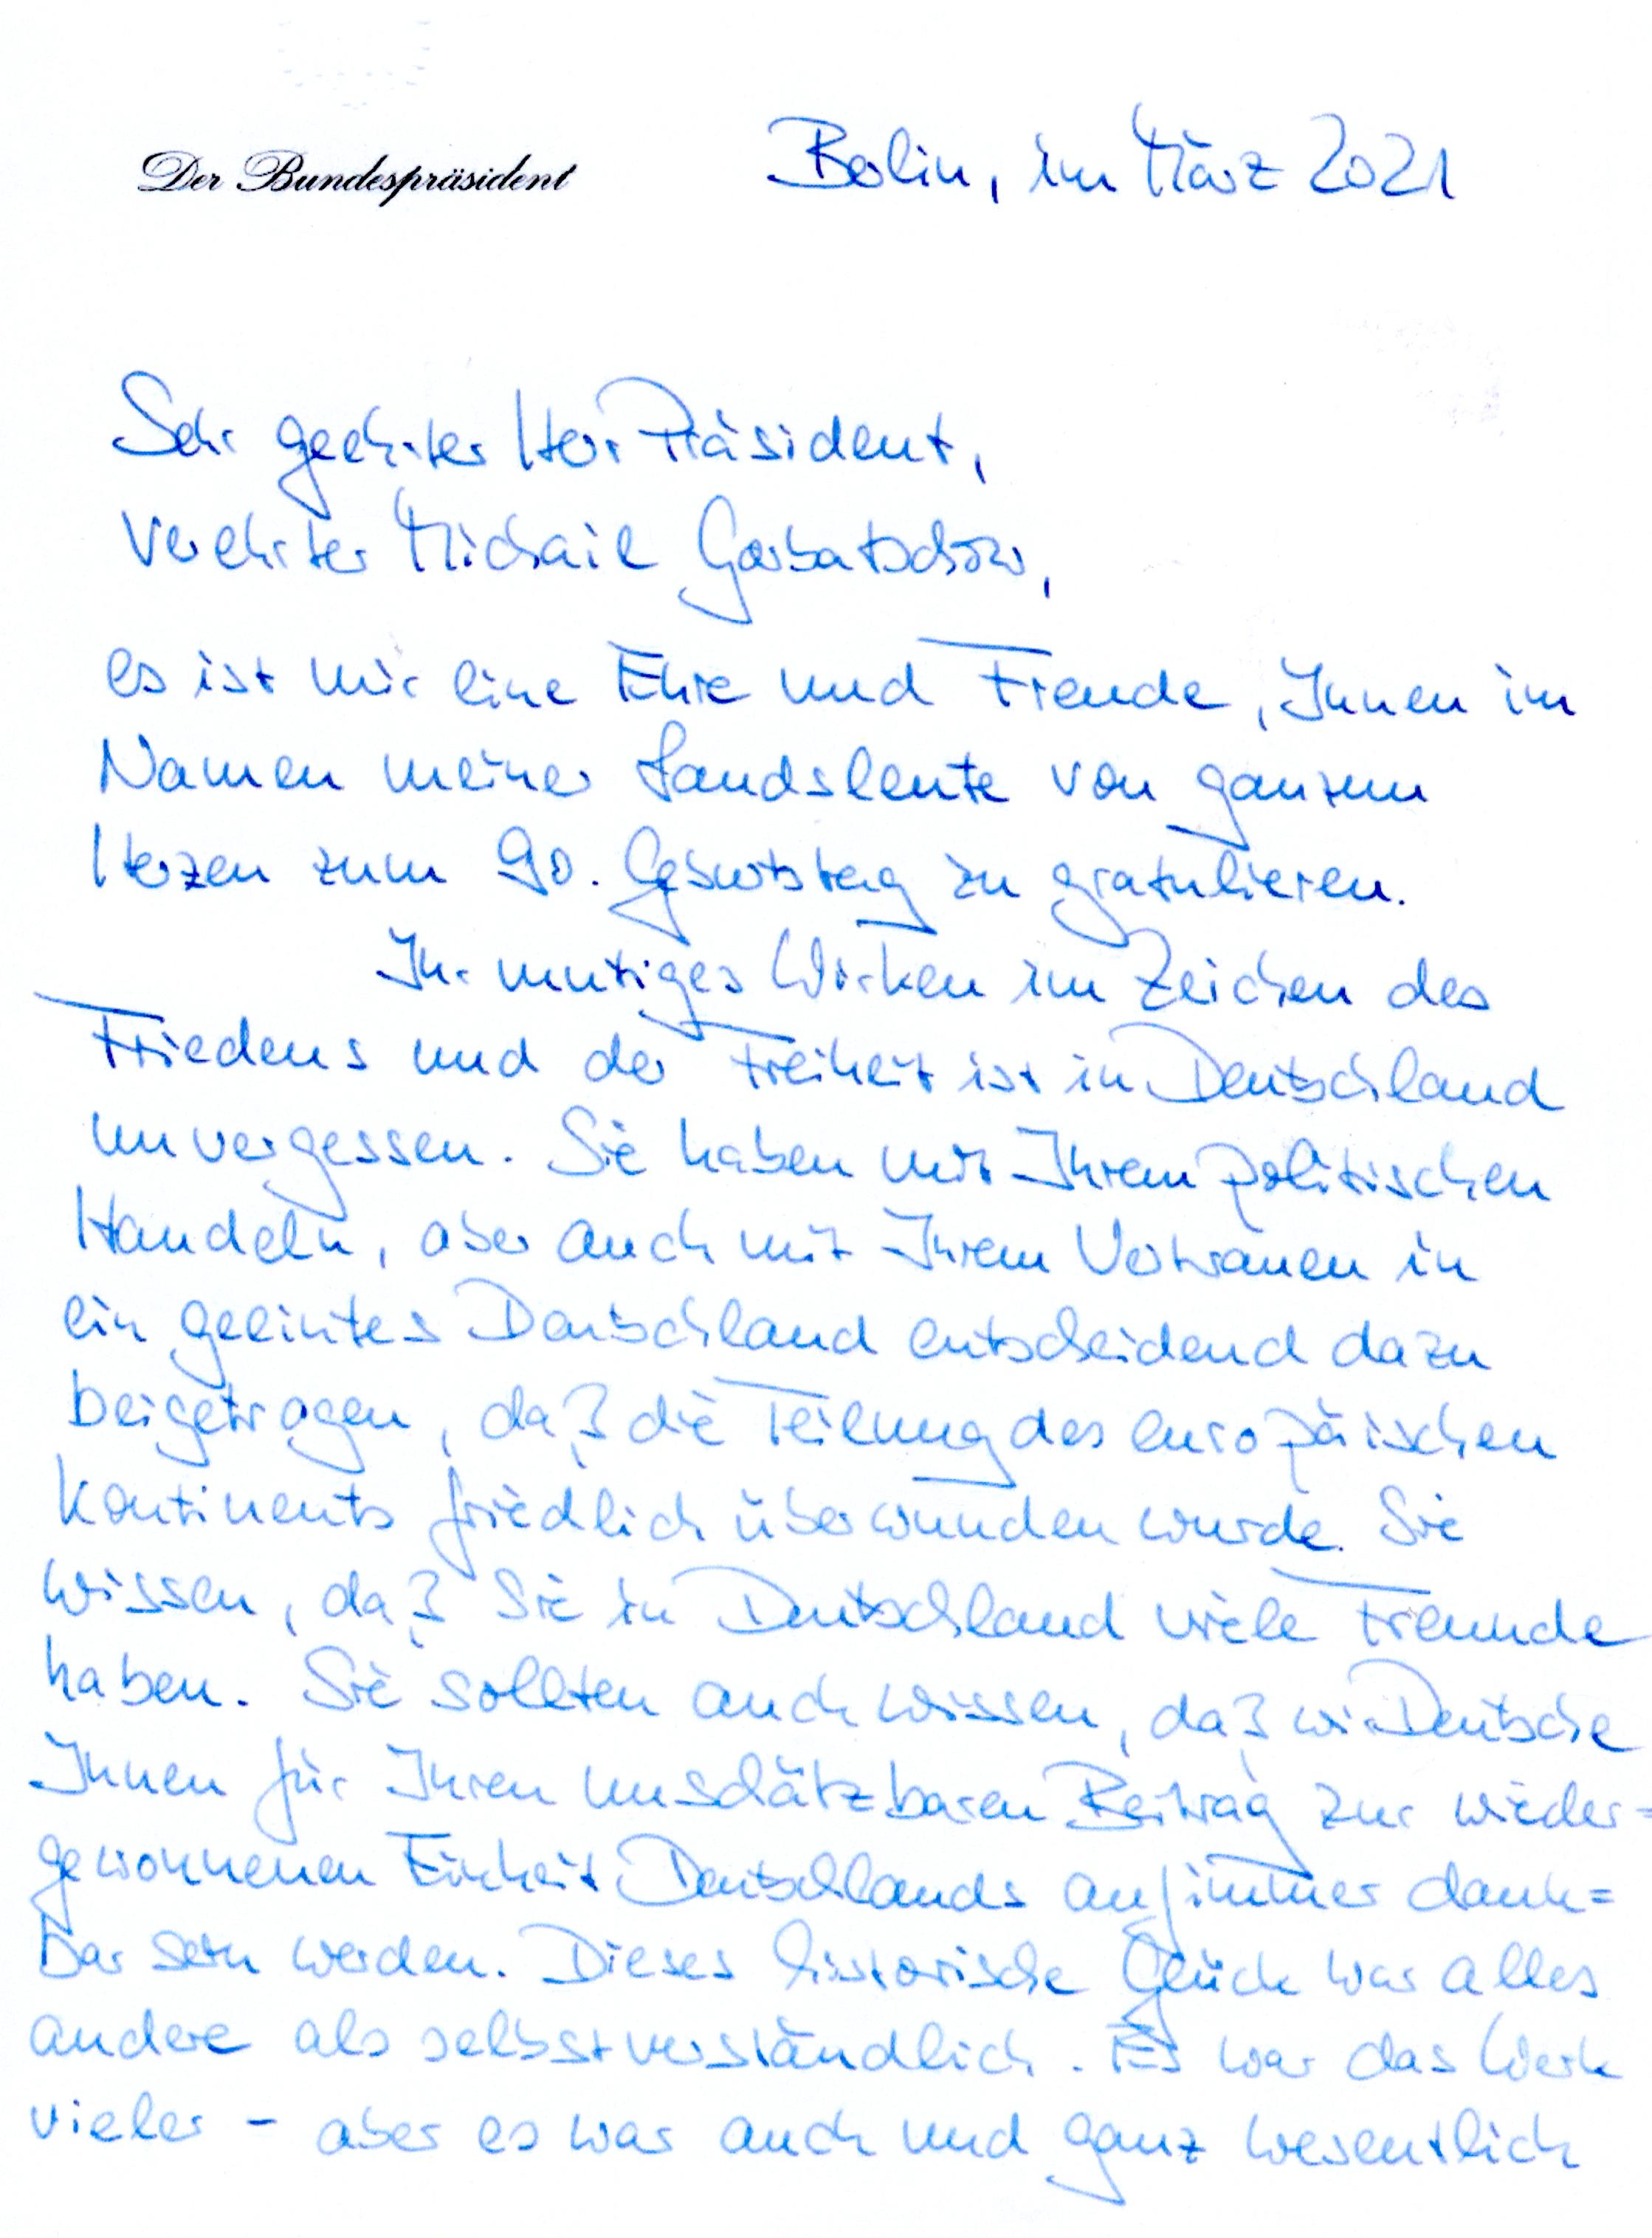 Der Bundespräsident
Berlin, im März 2021
Sehr geehrter Herr Präsident,
verehrter Michail Gorbatschow,
es ist mir eine Ehre und Freude, Ihnen im
Namen meiner Landsleute von ganzem
Herzen zum 90. Geburtstag zu gratulieren.
Ihr mutiges Wirken im Zeichen des
Friedens und der Freiheit ist in Deutschland
unvergessen. Sie haben mit Ihrem politischen
Handeln, aber auch mit Ihrem Vertrauen in
ein geeintes Deutschland entscheidend dazu
beigetragen, daß die Teilung des europäischen
Kontinents friedlich überwunden wurde. Sie
wissen, daß Sie in Deutschland viele Freunde
haben. Sie sollten auch wissen, daß wir Deutsche
Ihnen für Ihren unschätzbaren Beitrag zur wieder=
gewonnenen Einheit Deutschlands auf immer dank=
bar sein werden. Dieses historische Glück war alles
andere als selbstverständlich. Es war das Werk
vieler – aber es war auch und ganz wesentlich